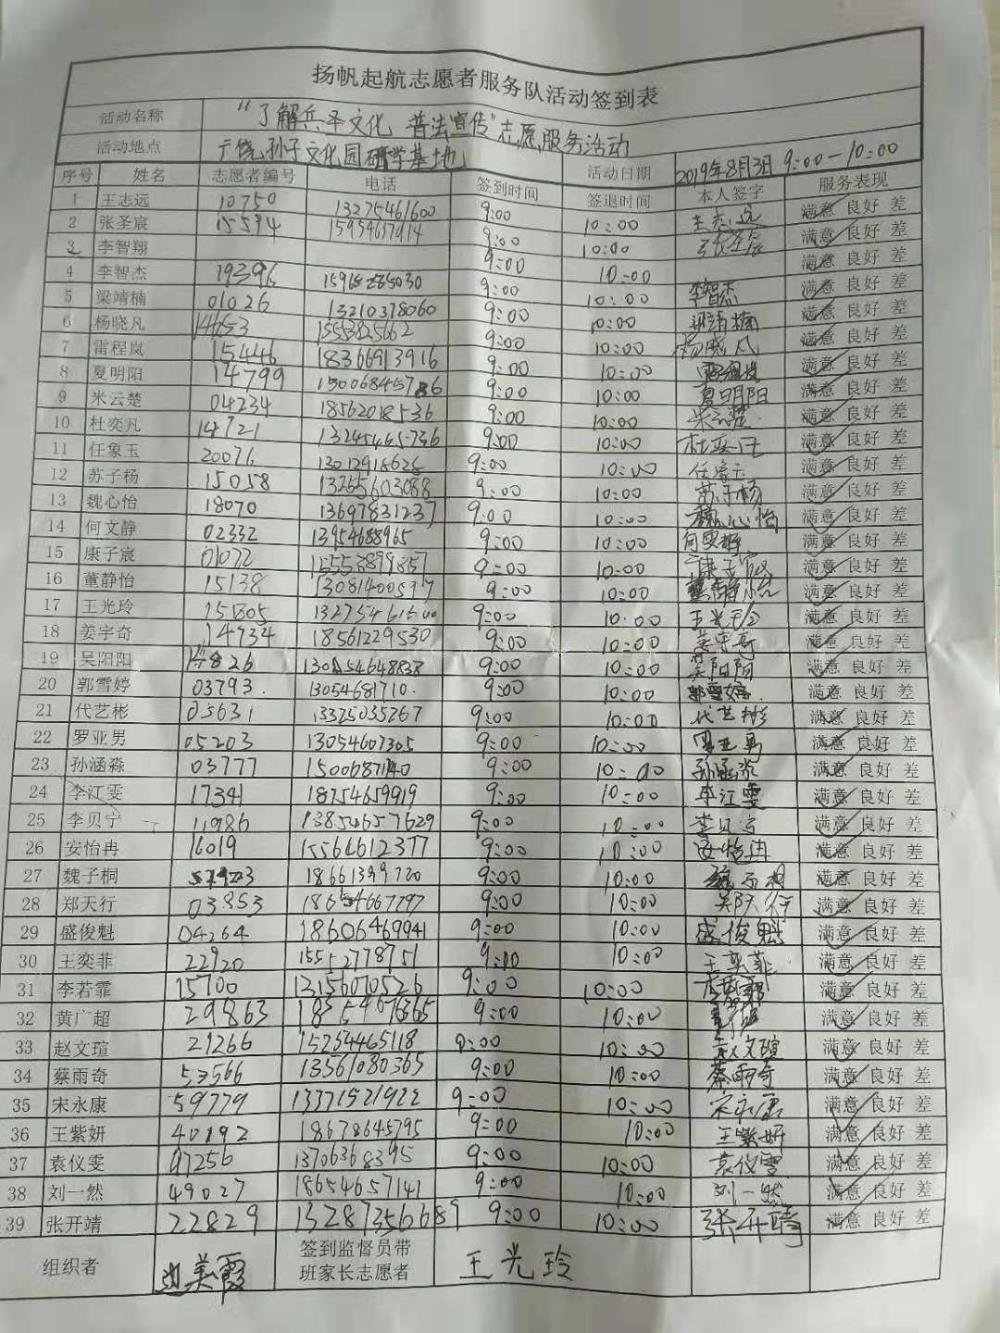 扬帆起航志愿者服务队活动签到表
活动名称 “了解兵圣文化 普法宣传”志愿服务活动
活动地点 广饶孙子文化园研学基地 活动日期 2019年8月3日 9:00-10:00
序号 姓名 志愿者编号 电话 签到时间 签退时间 本人签字 服务表现
1 王志远 10750 13275461600 9:00 10:00 王志远 满意 良好 差
2 张圣宸 15594 15959657914 9:00 10:00 张圣宸 满意 良好 差
3 李智翔 9:00 10:00 满意 良好 差
4 李智杰 19396 9:00 10:00 李智杰 满意 良好 差
5 梁靖楠 01026 13210378060 9:00 10:00 梁靖楠 满意 良好 差
6 杨晓凡 9:00 10:00 杨晓凡 满意 良好 差
7 雷程岚 15446 18366913916 9:00 10:00 满意 良好 差
8 夏明阳 14799 9:00 10:00 夏明阳 满意 良好 差
9 米云楚 04234 18562018536 9:00 10:00 米云楚 满意 良好 差
10 杜奕凡 14721 13245465736 9:00 10:00 杜奕凡 满意 良好 差
11 任象玉 20076 9:00 10:00 满意 良好 差
12 苏子杨 15058 13255603088 9:00 10:00 苏子杨 满意 良好 差
13 魏心怡 18070 13697831237 9:00 10:00 魏心怡 满意 良好 差
14 何文静 02332 13954688965 9:00 10:00 何文静 满意 良好 差
15 康子宸 01022 9:00 10:00 康子宸 满意 良好 差
16 董静怡 15138 13081400597 9:00 10:00 董静怡 满意 良好 差
17 王光玲 9:00 10:00 王光玲 满意 良好 差
18 姜宇奇 14934 18561229530 9:00 10:00 姜宇奇 满意 良好 差
19 吴阳阳 9:00 10:00 吴阳阳 满意 良好 差
20 郭雪婷 03793 13054681710 9:00 10:00 郭雪婷 满意 良好 差
21 代艺彬 05631 13325035267 9:00 10:00 代艺彬 满意 良好 差
22 罗亚男 05203 13054607305 9:00 10:00 罗亚男 满意 良好 差
23 孙涵淼 03777 15006871140 9:00 10:00 孙涵淼 满意 良好 差
24 李江雯 17341 18754659919 9:00 10:00 李江雯 满意 良好 差
25 李贝宁 11986 9:00 10:00 李贝宁 满意 良好 差
26 安怡冉 16019 15564612377 9:00 10:00 安怡冉 满意 良好 差
27 魏子桐 18661399720 9:00 10:00 魏子桐 满意 良好 差
28 郑天行 03853 9:00 10:00 满意 良好 差
29 盛俊魁 04264 18606469941 9:00 10:00 盛俊魁 满意 良好 差
30 王奕菲 22920 15552778751 9:00 10:00 王奕菲 满意 良好 差
31 李若霏 15700 12156070526 9:00 10:00 满意 良好 差
32 黄广超 29863 18354676665 9:00 10:00 满意 良好 差
33 赵文瑄 21266 15254465118 9:00 10:00 赵文瑄 满意 良好 差
34 蔡雨奇 53566 13561080365 9:00 10:00 蔡雨奇 满意 良好 差
35 宋永康 59779 13371521922 9:00 10:00 宋永康 满意 良好 差
36 王紫妍 40192 18678645795 9:00 10:00 王紫妍 满意 良好 差
37 袁仪雯 07256 13706368395 9:00 10:00 袁仪雯 满意 良好 差
38 刘一然 49027 18654657141 9:00 10:00 刘一然 满意 良好 差
39 张开靖 22829 13287356689 9:00 10:00 张开靖 满意 良好 差
组织者 边美霞 签到监督员带 王光玲
班家长志愿者